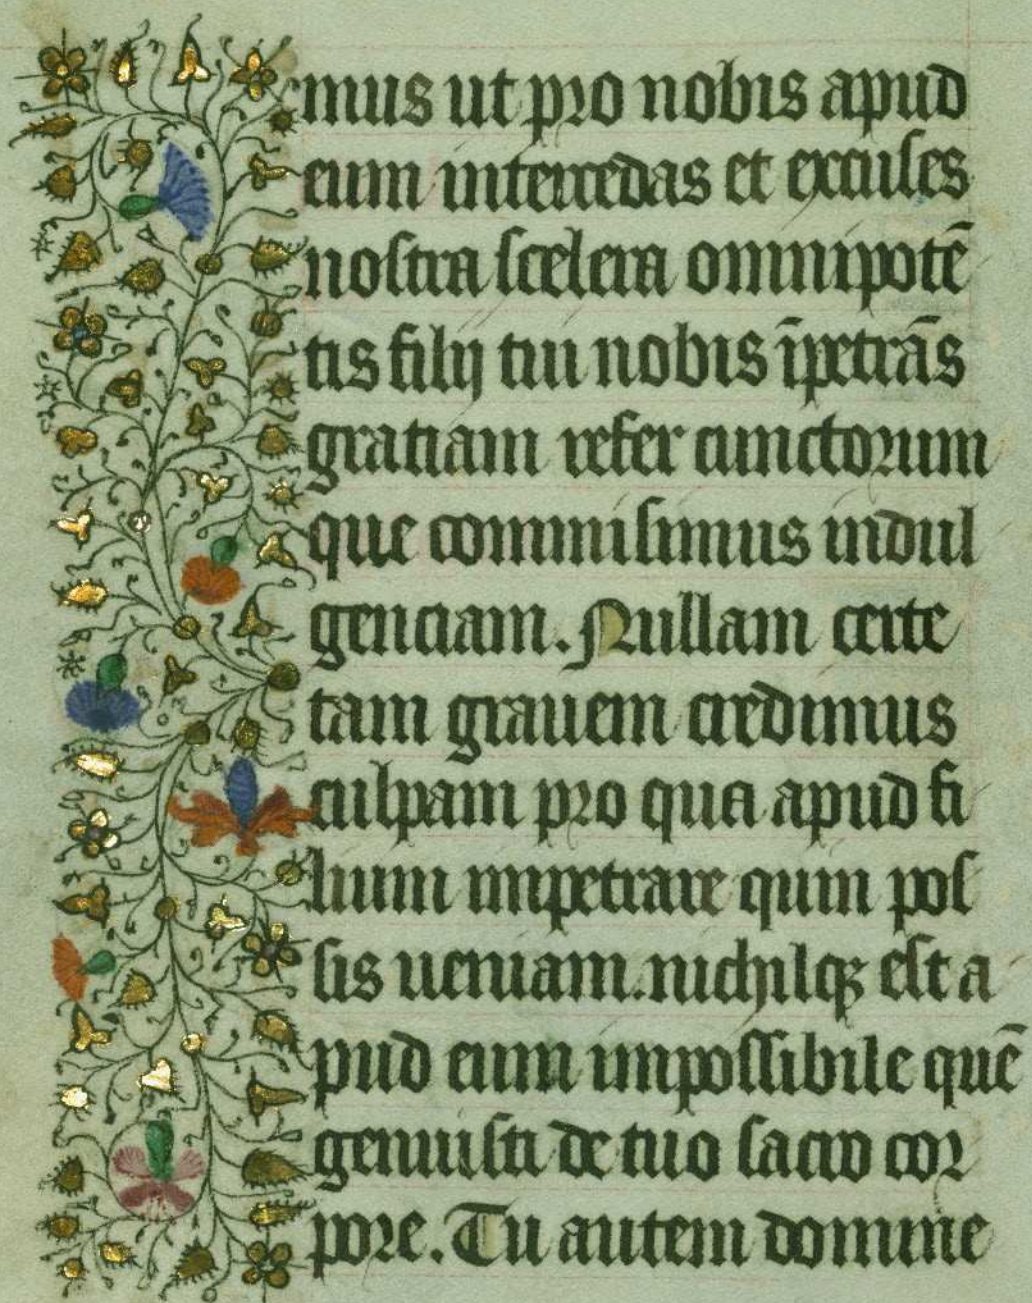 mus ut pro nobis apud
eum intercedas et excuses
nostra scelera omnipotē
tis filij tui nobis īpetrās
gratiam refer cunctorum
que commisimus indul
genciam. Nullam certe
tam grauem credimus
culpam pro qua apud fi
lium impetrare quin pos
sis ueniam. nichilqꝫ est a
pud eum impossibile quē
genuisti de tuo sacro cor
pore. Tu autem domine